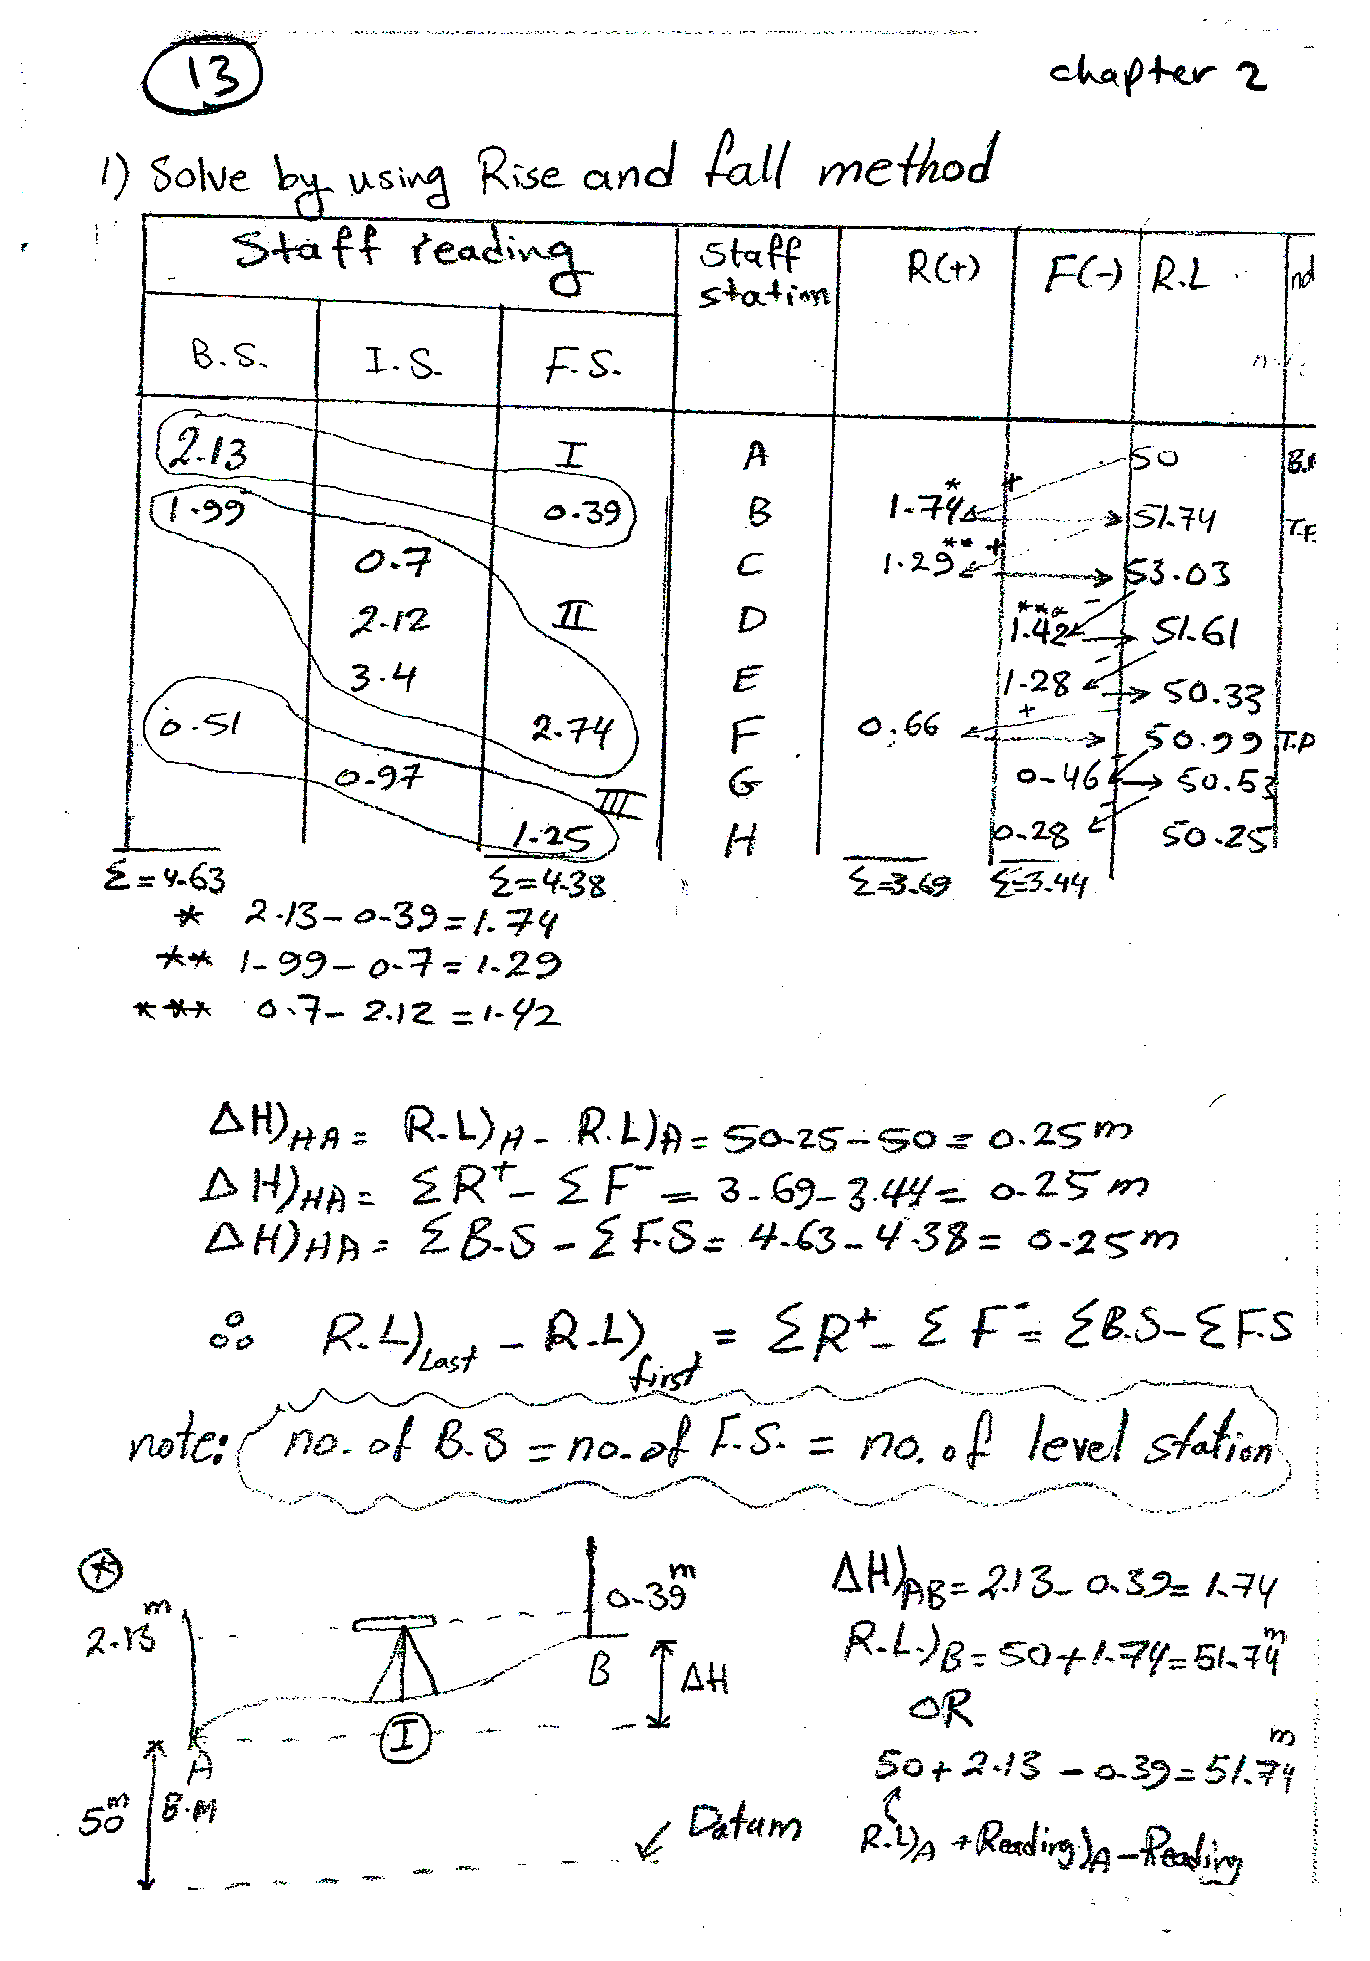 13
chapter 2
1) Solve by using Rise and fall method
Staff reading | Staff station | R(+) | F(-) | R.L
B.S. | I.S. | F.S.
2.13 I A 50
1.99 0.39 B 1.74* + 51.74
0.7 C 1.29** + 53.03
2.12 II D 1.42*** - 51.61
3.4 E 1.28 - 50.33
0.51 2.74 F 0.66 + 50.99 T.P
0.97 III G 0.46 - 50.53
1.25 H 0.28 - 50.25
Σ=4.63 Σ=4.38 Σ=3.69 Σ=3.44
* 2.13-0.39=1.74
** 1.99-0.7=1.29
*** 0.7-2.12=1.42
ΔH)HA = R.L)H - R.L)A = 50.25-50 = 0.25 m
ΔH)HA = ΣR⁺ - ΣF⁻ = 3.69-3.44 = 0.25 m
ΔH)HA = ΣB.S - ΣF.S = 4.63-4.38 = 0.25 m
∴ R.L)Last - R.L)first = ΣR⁺ - ΣF⁻ = ΣB.S-ΣF.S
note: no. of B.S = no. of F.S. = no. of level station
* 2.13 m 0.39 m ΔH)AB = 2.13-0.39 = 1.74
B ΔH R.L.)B = 50+1.74 = 51.74 m
I OR
A 50+2.13-0.39=51.74 m
50 m B.M Datum R.L)A + Reading)A - Reading